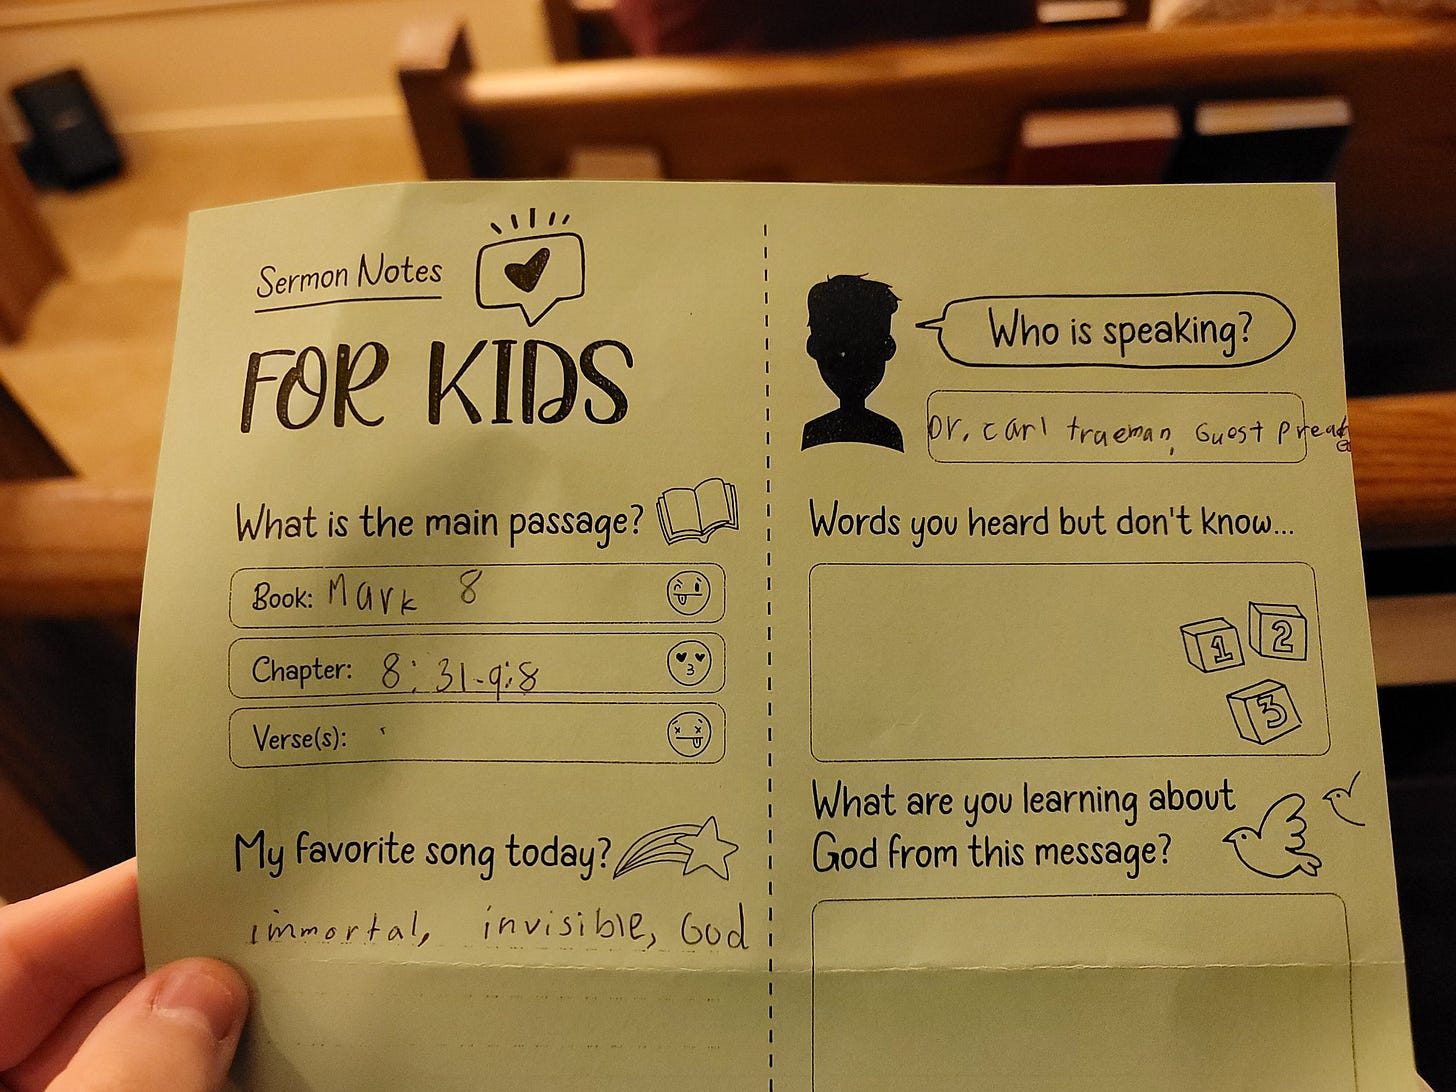 Sermon Notes
FOR KIDS
What is the main passage?
Book: Mark 8
Chapter: 8:31-9:8
Verse(s):
My favorite song today?
immortal, invisible, God
Who is speaking?
Dr. Carl traeman, Guest Preach
Words you heard but don't know...
1 2
3
What are you learning about
God from this message?